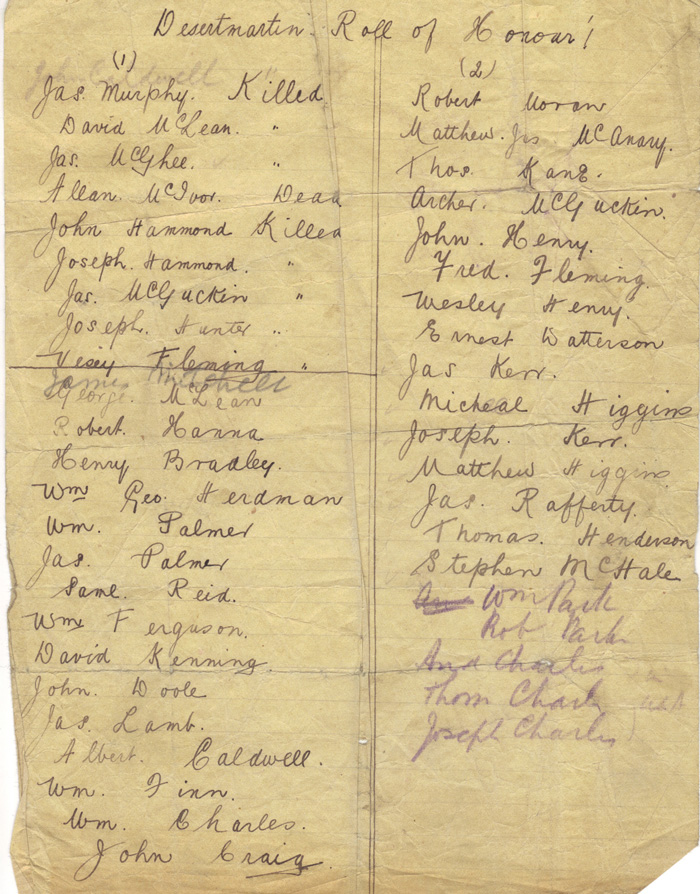 Desertmartin. Roll of Honour!
(1)
John Caldwell "
Jas. Murphy. Killed
David McLean. "
Jas. McGhee. "
Allan. McIvor. Dead
John Hammond Killed
Joseph. Hammond. "
Jas. McGuckin "
Joseph. Hunter "
Vesey Fleming "
James Mitchell
George. McLean
Robert. Hanna
Henry Bradley.
Wm Geo. Herdman
Wm. Palmer
Jas. Palmer
Saml. Reid.
Wm Ferguson.
David Kenning.
John. Doole
Jas. Lamb.
Albert. Caldwell.
Wm. Finn.
Wm. Charles.
John Craig
(2)
Robert Moran
Matthew. Jas McAnary.
Thos. Kane.
Archer. McGuckin.
John. Henry.
Fred. Fleming.
Wesley Henry.
Ernest Watterson
Jas Kerr.
Micheal Higgins
Joseph. Kerr.
Matthew Higgins
Jas. Rafferty.
Thomas. Henderson
Stephen McHale
Wm Park
Rob Park
And Charles
Thom Charles
Joseph Charles